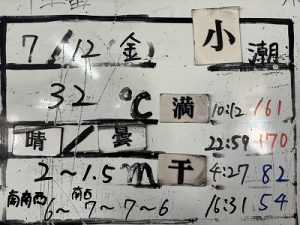 7/12 金 小潮
32 ℃ 満 10:12 161
晴/曇 22:59 170
2~1.5m 干 4:27 82
南南西 6~ 南西 7~7~6 16:31 54